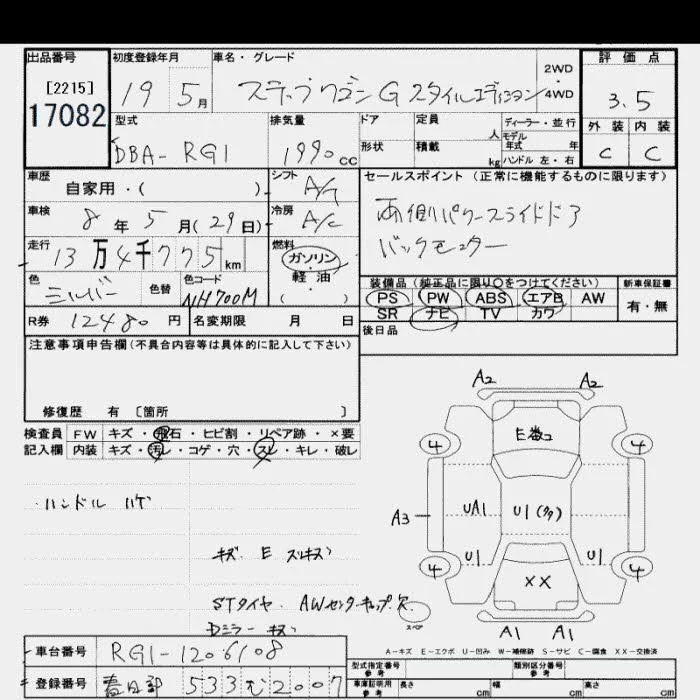 出品番号 初度登録年月 車名・グレード 評価点
[2215] 19 5月 ステップワゴン G スタイルエディション 2WD・4WD 3.5
17082 型式 排気量 ドア 定員 人 ディーラー・並行 外装 内装
DBA-RG1 1990cc 形状 積載 kg モデル年式 年 C C
ハンドル 左・右
車歴 自家用・( ) シフト A/T セールスポイント(正常に機能するものに限ります)
車検 8年5月(29日) 冷房 A/C 両側パワースライドドア
走行 13万4千775km 燃料 ガソリン・軽油・( ) バックモニター
色 シルバー 色替 色コード NH700M 装備品(純正品に限り○をつけてください) 新車保証書
PS PW ABS エアB AW 有・無
R券 12480円 名変期限 月 日 SR ナビ TV カワ
後日品
注意事項申告欄(不具合内容等は具体的に記入して下さい)
修復歴 有 [箇所 ]
検査員 FW キズ・飛石・ヒビ割・リペア跡・×要
記入欄 内装 キズ・汚レ・コゲ・穴・スレ・キレ・破レ
A2 A2
E数コ
4 4
・ハンドル ハゲ
A3 UA1 U1(タタ)
キズ E スリキズ
U1 U1
4 4
XX
STタイヤ・AWセンターキャップ欠
スペア
Dミラーキズ
A1 A1
A-キズ E-エクボ U-凹み W-補修跡 S-サビ C-腐食 XX-交換済
車台番号 RG1-1206108
型式指定番号 参考 類別区分番号 参考
登録番号 春日部 533 む 2007
車庫証明用 参考 長さ cm 幅 cm 高さ cm